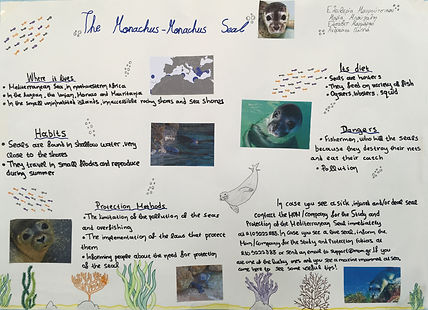 The Monachus-Monachus Seal
Where it lives
• Mediterranean Sea, in northwestern Africa
• In the Aegean, the Ionian, Monaco and Mauritania
• In the small uninhabited islands, inaccessible rocky shores and sea shores
Habits
• Seals are found in shallow water, very
close to the shores
• They travel in small flocks and reproduce
during summer
Its diet
• Seals are hunters
• They feed on variety of fish
• Oysters, lobsters, squid
Dangers
• Fishermen, who kill the seals
because they destroy their nets
and eat their catch
• Pollution
Protection Methods
• The limitation of the pollution of the seas
and overfishing
• The implementation of the laws that protect
them
• Informing people about the need for protection
of the seal
In case you see a sick, injured and/or dead seal
contact the MOm/company for the Study and
Protection of the Mediterranean Seal immediately
In case you see a seal, inform the
Mom/Company for the Study and Protection
or send an email to
are one of the lucky ones and you see a at sea,
come here to see some useful tips!